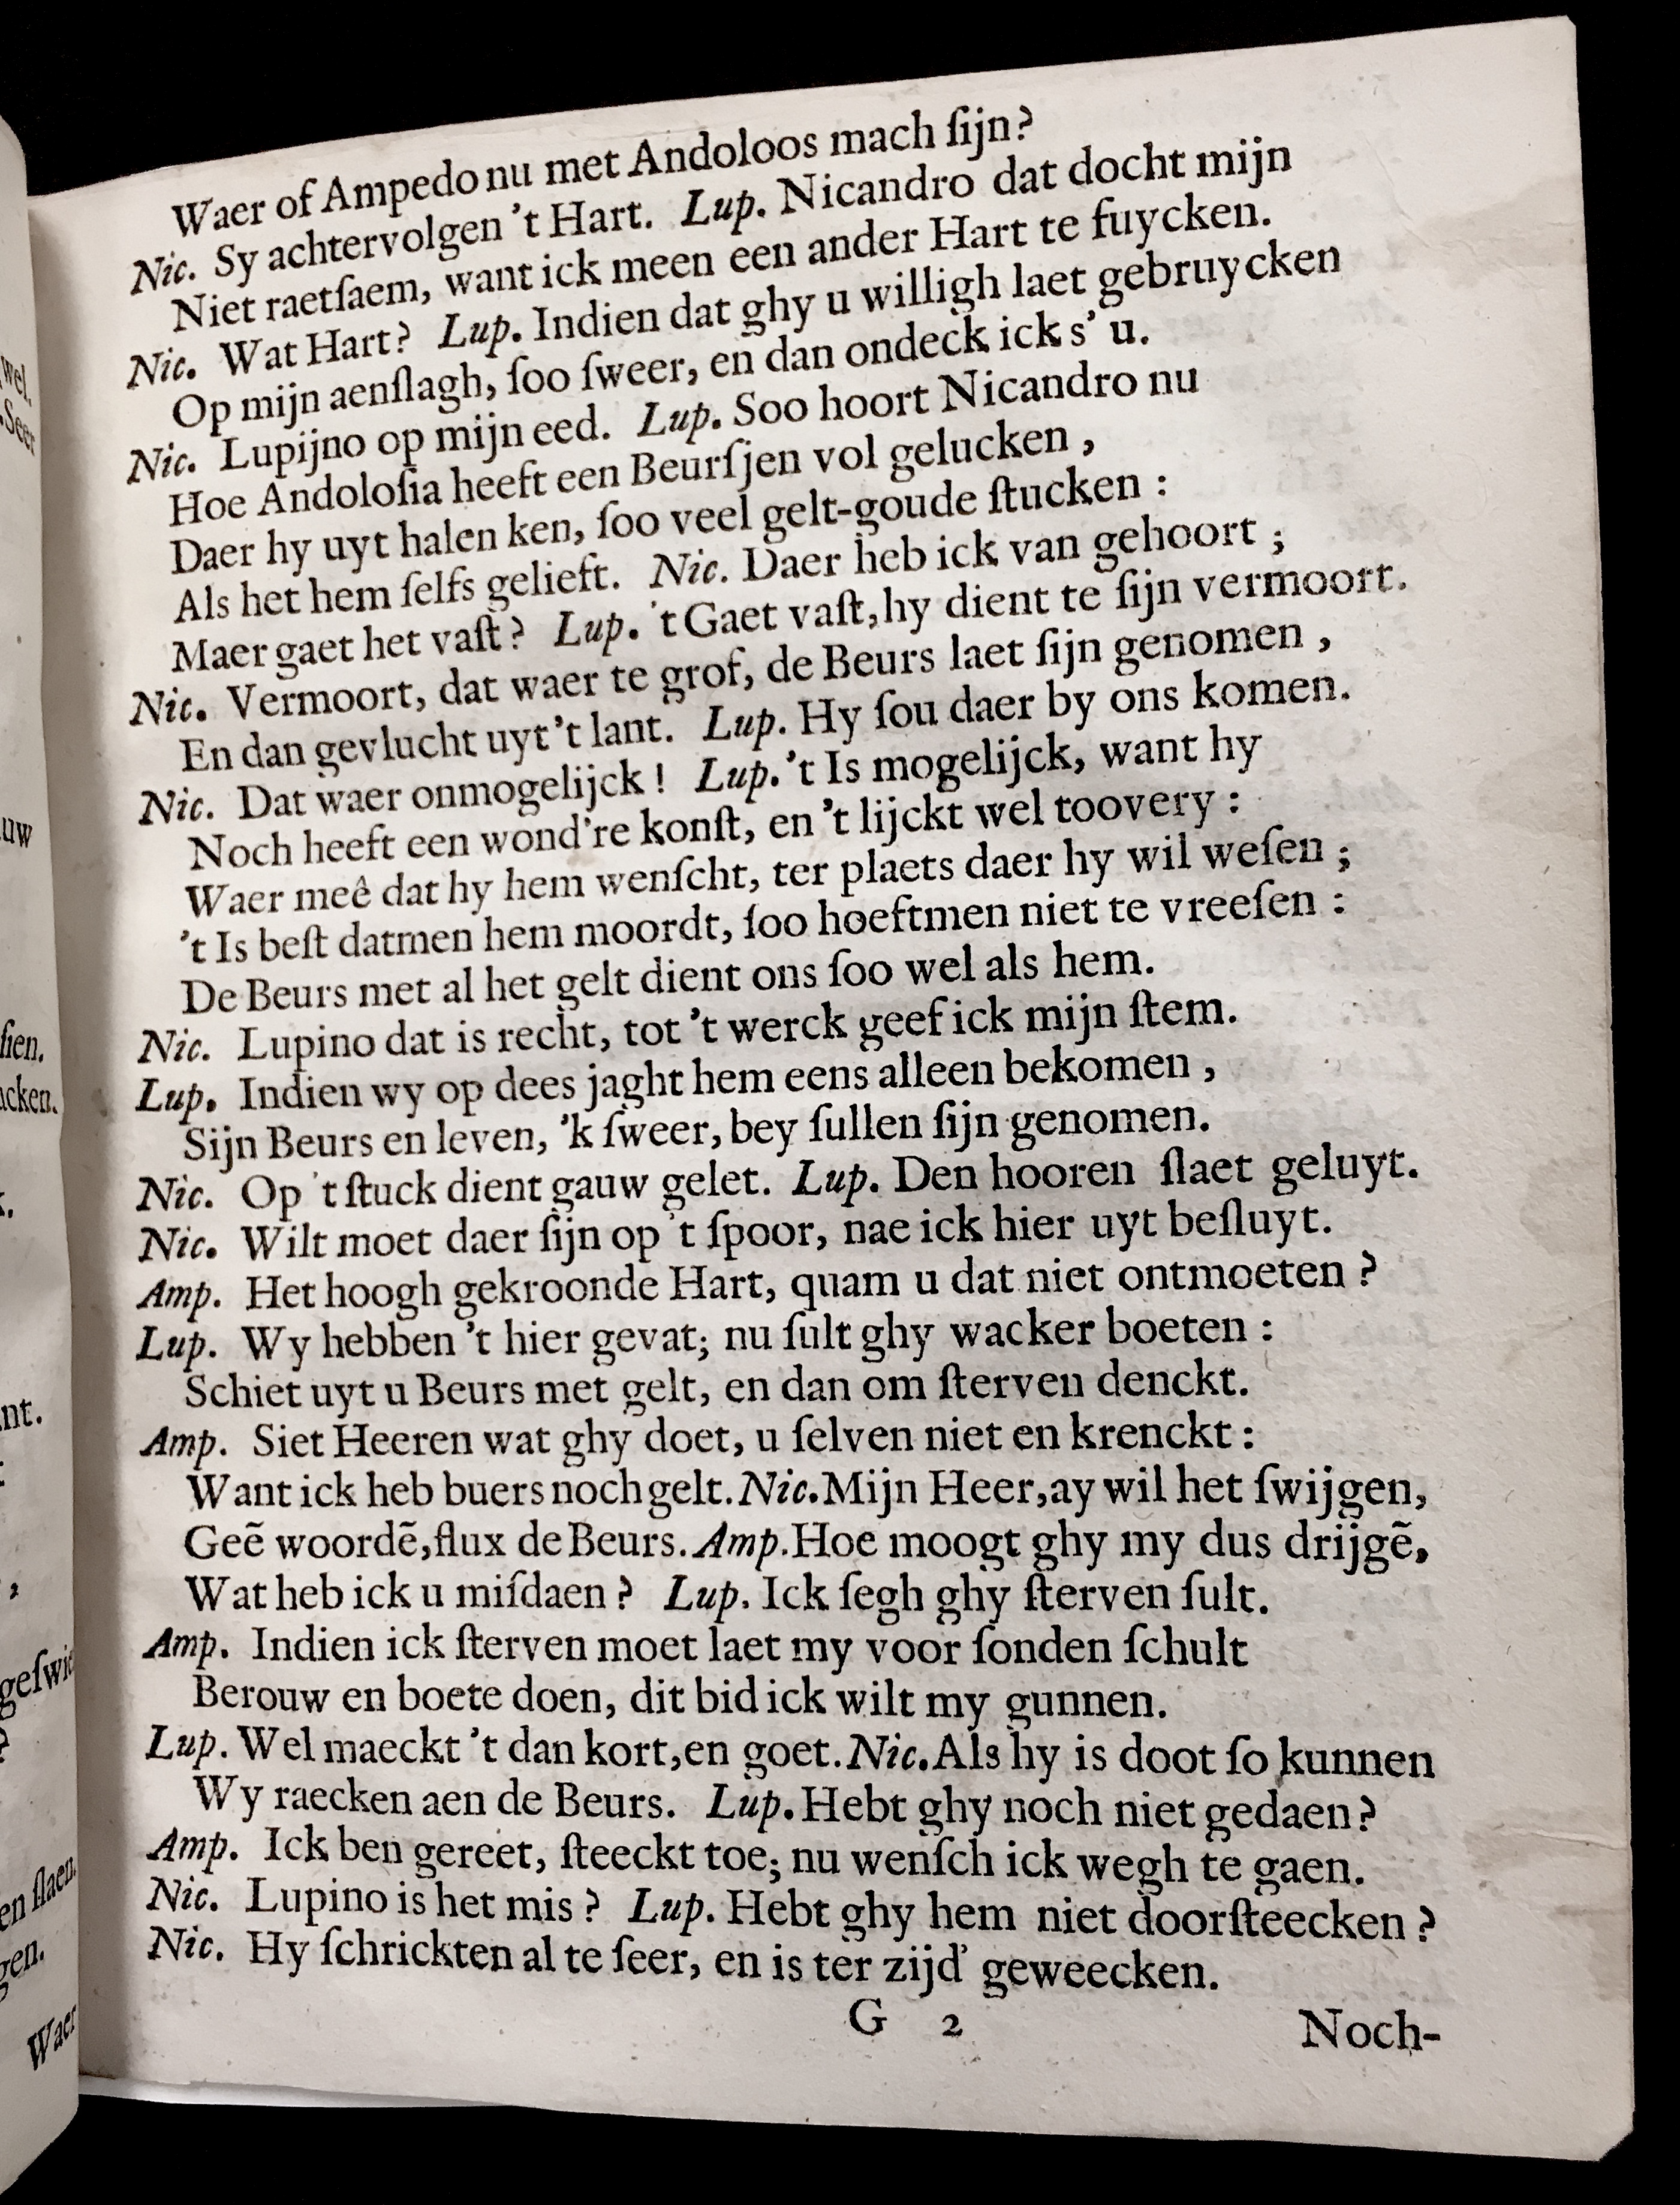 Waer of Ampedo nu met Andoloos mach ſijn?
Nic. Sy achtervolgen 't Hart. Lup. Nicandro dat docht mijn
Niet raetſaem, want ick meen een ander Hart te fuycken.
Nic. Wat Hart? Lup. Indien dat ghy u willigh laet gebruycken
Op mijn aenſlagh, ſoo ſweer, en dan ondeck ick s' u.
Nic. Lupijno op mijn eed. Lup. Soo hoort Nicandro nu
Hoe Andoloſia heeft een Beurſjen vol gelucken,
Daer hy uyt halen ken, ſoo veel gelt-goude ſtucken:
Als het hem ſelfs gelieft. Nic. Daer heb ick van gehoort;
Maer gaet het vaſt? Lup. 't Gaet vaſt, hy dient te ſijn vermoort.
Nic. Vermoort, dat waer te grof, de Beurs laet ſijn genomen,
En dan gevlucht uyt 't lant. Lup. Hy ſou daer by ons komen.
Nic. Dat waer onmogelijck! Lup. 't Is mogelijck, want hy
Noch heeft een wond're konſt, en 't lijckt wel toovery:
Waer meê dat hy hem wenſcht, ter plaets daer hy wil weſen;
't Is beſt datmen hem moordt, ſoo hoeftmen niet te vreeſen:
De Beurs met al het gelt dient ons ſoo wel als hem.
Nic. Lupino dat is recht, tot 't werck geef ick mijn ſtem.
Lup. Indien wy op dees jaght hem eens alleen bekomen,
Sijn Beurs en leven, 'k ſweer, bey ſullen ſijn genomen.
Nic. Op 't ſtuck dient gauw gelet. Lup. Den hooren ſlaet geluyt.
Nic. Wilt moet daer ſijn op 't ſpoor, nae ick hier uyt beſluyt.
Amp. Het hoogh gekroonde Hart, quam u dat niet ontmoeten?
Lup. Wy hebben 't hier gevat; nu ſult ghy wacker boeten:
Schiet uyt u Beurs met gelt, en dan om ſterven denckt.
Amp. Siet Heeren wat ghy doet, u ſelven niet en krenckt:
Want ick heb buers noch gelt. Nic. Mijn Heer, ay wil het ſwijgen,
Geē woordē, flux de Beurs. Amp. Hoe moogt ghy my dus drijgē,
Wat heb ick u miſdaen? Lup. Ick ſegh ghy ſterven ſult.
Amp. Indien ick ſterven moet laet my voor ſonden ſchult
Berouw en boete doen, dit bid ick wilt my gunnen.
Lup. Wel maeckt 't dan kort, en goet. Nic. Als hy is doot ſo kunnen
Wy raecken aen de Beurs. Lup. Hebt ghy noch niet gedaen?
Amp. Ick ben gereet, ſteeckt toe; nu wenſch ick wegh te gaen.
Nic. Lupino is het mis? Lup. Hebt ghy hem niet doorſteecken?
Nic. Hy ſchrickten al te ſeer, en is ter zijd' geweecken.
G 2
Noch-
wel.
Seer
uw
ſien.
cken.
nt.
geſwi
en ſlaen.
gen.
Waer